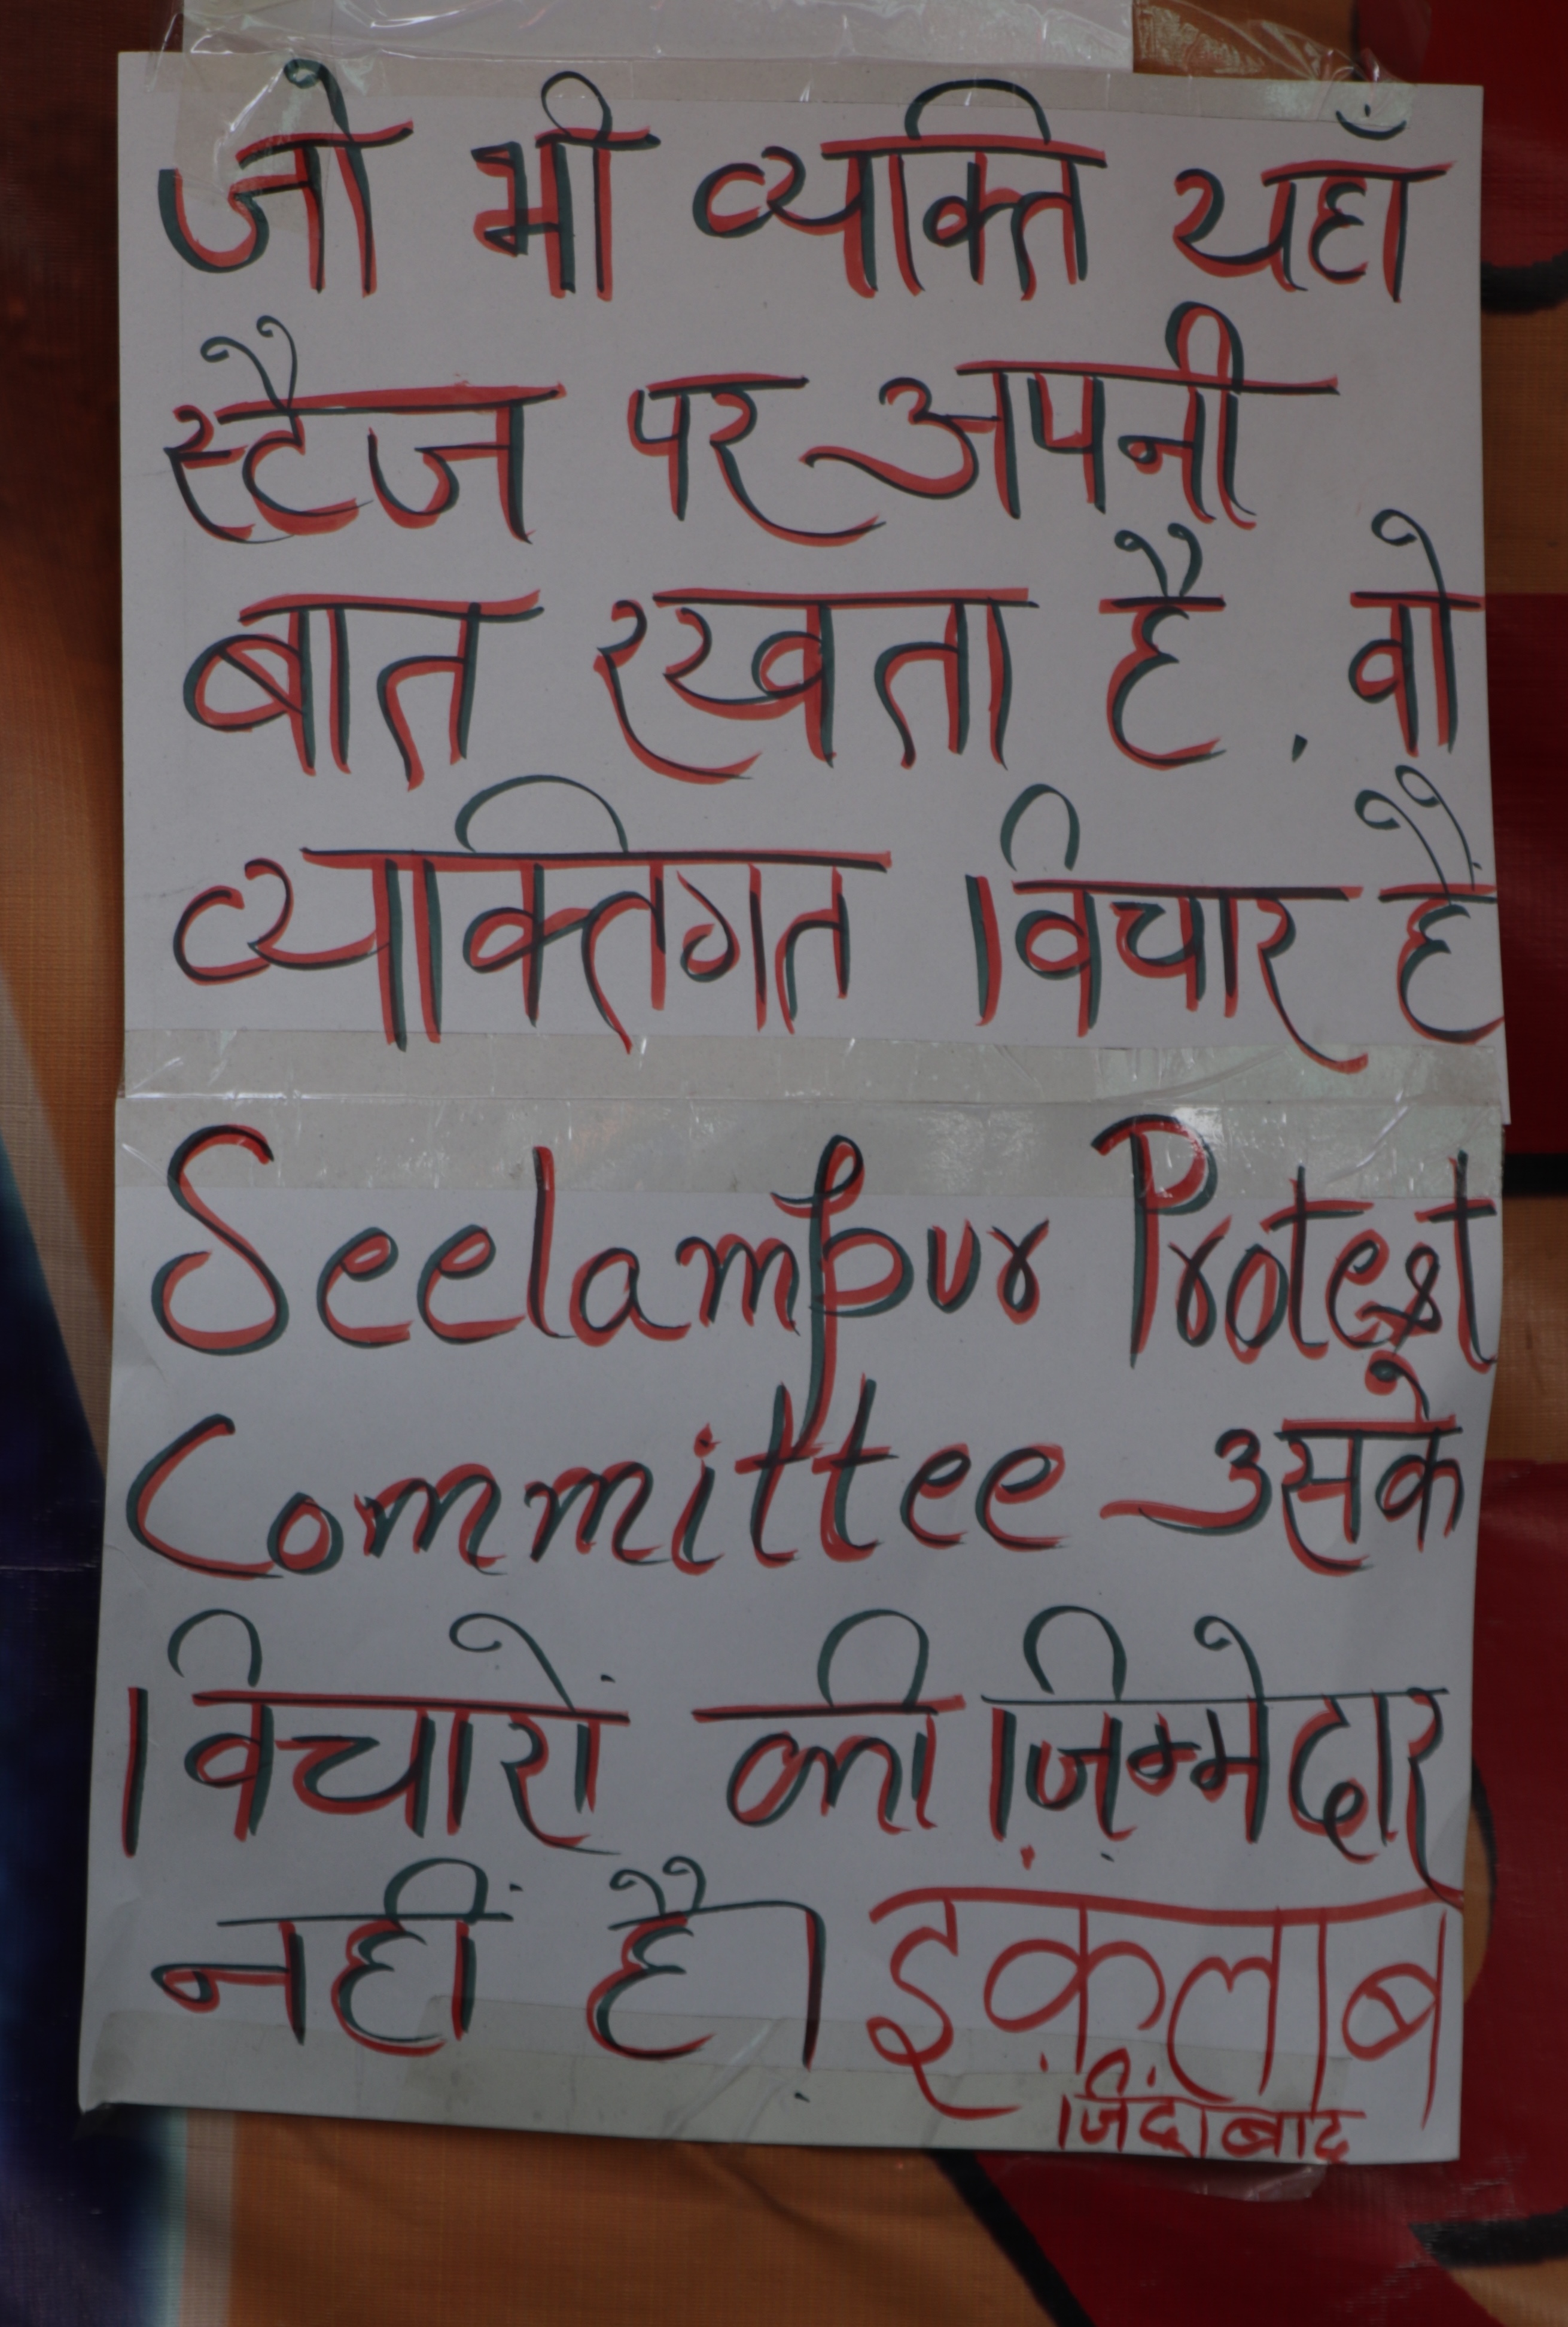 जो भी व्यक्ति यहाँ
स्टैज पर अपनी
बात रखता है, वो
व्यक्तिगत विचार हैं
Seelampur Protest
Committee उसके
विचारों की ज़िम्मेदार
नहीं है। इक़लाब
जिंदाबाद